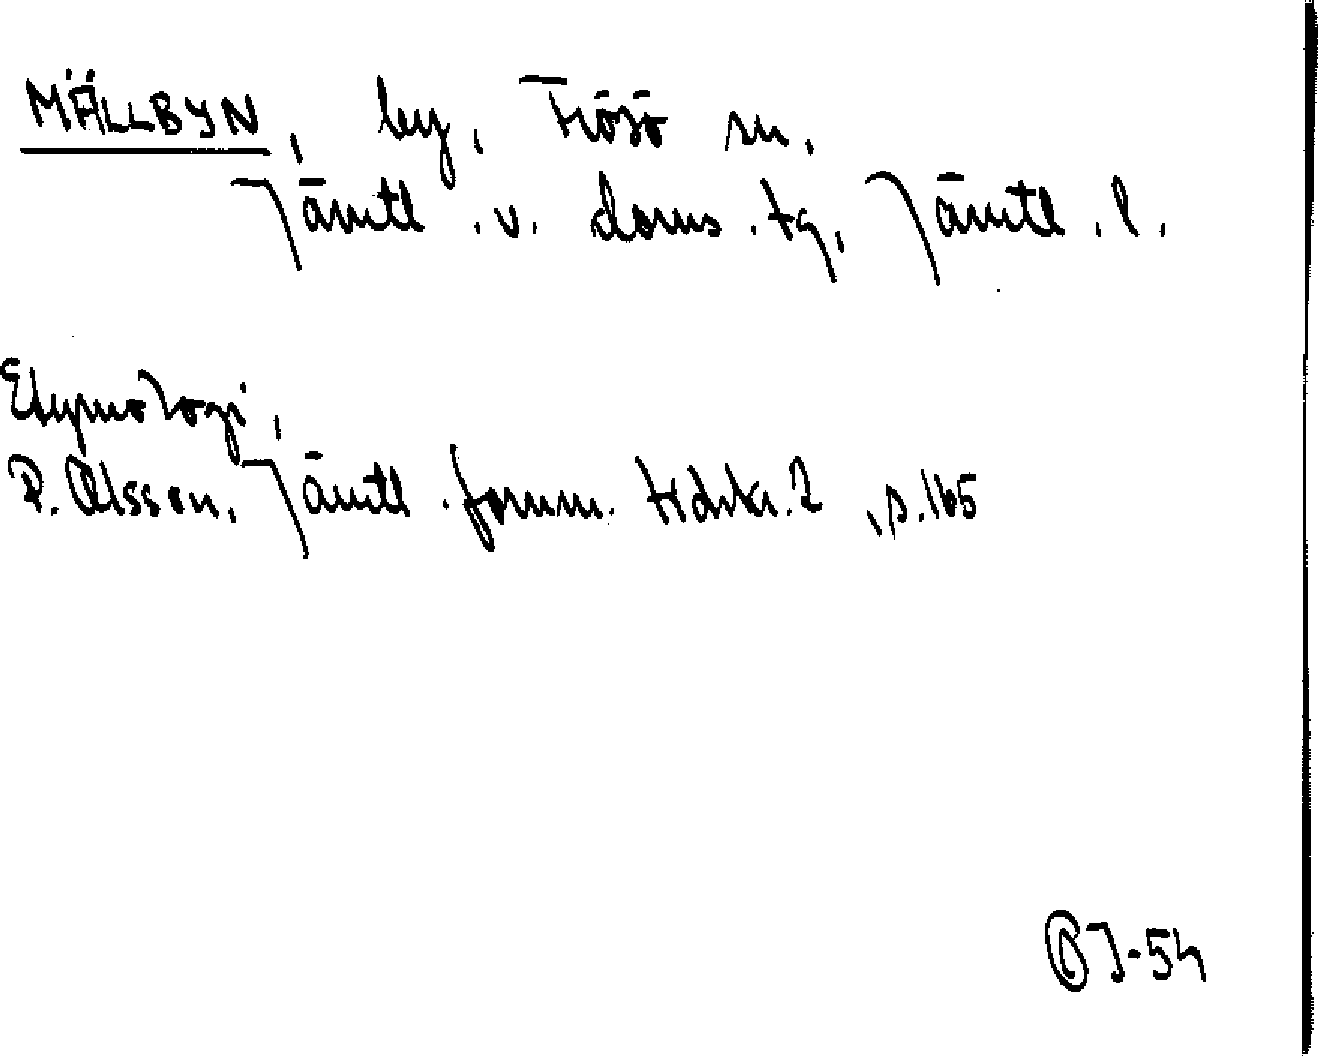 MÄLLBYN, by, Frösö sn,
Jämtl. v. doms. tg, Jämtl. l.
Etymologi,
P. Olsson, Jämtl. fornm. tidskr. 2, s. 165
J-54